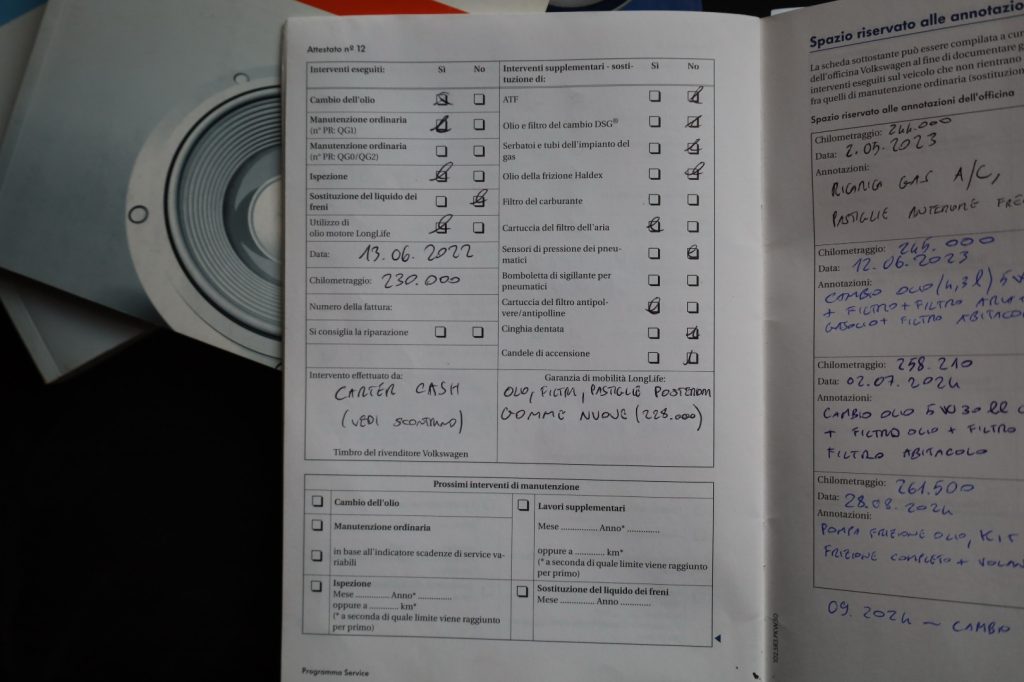 Attestato nº 12
Interventi eseguiti: Sì No
Cambio dell'olio
Manutenzione ordinaria
(nº PR: QG1)
Manutenzione ordinaria
(nº PR: QG0/QG2)
Ispezione
Sostituzione del liquido dei
freni
Utilizzo di
olio motore LongLife
Data: 13.06.2022
Chilometraggio: 230.000
Numero della fattura:
Si consiglia la riparazione
Interventi supplementari - sosti-
tuzione di: Sì No
ATF
Olio e filtro del cambio DSG®
Serbatoi e tubi dell'impianto del
gas
Olio della frizione Haldex
Filtro del carburante
Cartuccia del filtro dell'aria
Sensori di pressione dei pneu-
matici
Bomboletta di sigillante per
pneumatici
Cartuccia del filtro antipol-
vere/antipolline
Cinghia dentata
Candele di accensione
Intervento effettuato da:
CARTER CASH
(VEDI SCONTRINO)
Timbro del rivenditore Volkswagen
Garanzia di mobilità LongLife:
OLIO, FILTRI, PASTIGLIE POSTERIORI
GOMME NUOVE (228.000)
Prossimi interventi di manutenzione
Cambio dell'olio
Manutenzione ordinaria
in base all'indicatore scadenze di service va-
riabili
Ispezione
Mese .............. Anno* ..............
oppure a ............ km*
(* a seconda di quale limite viene raggiunto
per primo)
Lavori supplementari
Mese ............... Anno* .............
oppure a ............ km*
(* a seconda di quale limite viene raggiunto
per primo)
Sostituzione del liquido dei freni
Mese ............... Anno .............
Programma Service
Spazio riservato alle annotazio
La scheda sottostante può essere compilata a cur
dell'officina Volkswagen al fine di documentare g
interventi eseguiti sul veicolo che non rientrano
fra quelli di manutenzione ordinaria (sostituzion
Spazio riservato alle annotazioni dell'officina
Chilometraggio: 244.000
Data: 2.05.2023
Annotazioni:
RICARICA GAS A/C,
PASTIGLIE ANTERIORE FRE
Chilometraggio: 245.000
Data: 12.06.2023
Annotazioni:
CAMBIO OLIO (4,3l) 5W
+ FILTRO + FILTRO ARIA +
GASOLIO + FILTRO ABITACOL
Chilometraggio: 258.210
Data: 02.07.2024
Annotazioni:
CAMBIO OLIO 5W30
+ FILTRO OLIO + FILTRO
FILTRO ABITACOLO
Chilometraggio: 261.500
Data: 28.08.2024
Annotazioni:
POMPA FRIZIONE OLIO, KIT
FRIZIONE COMPLETO + VOLAN
09.2024 ~ CAMBIO